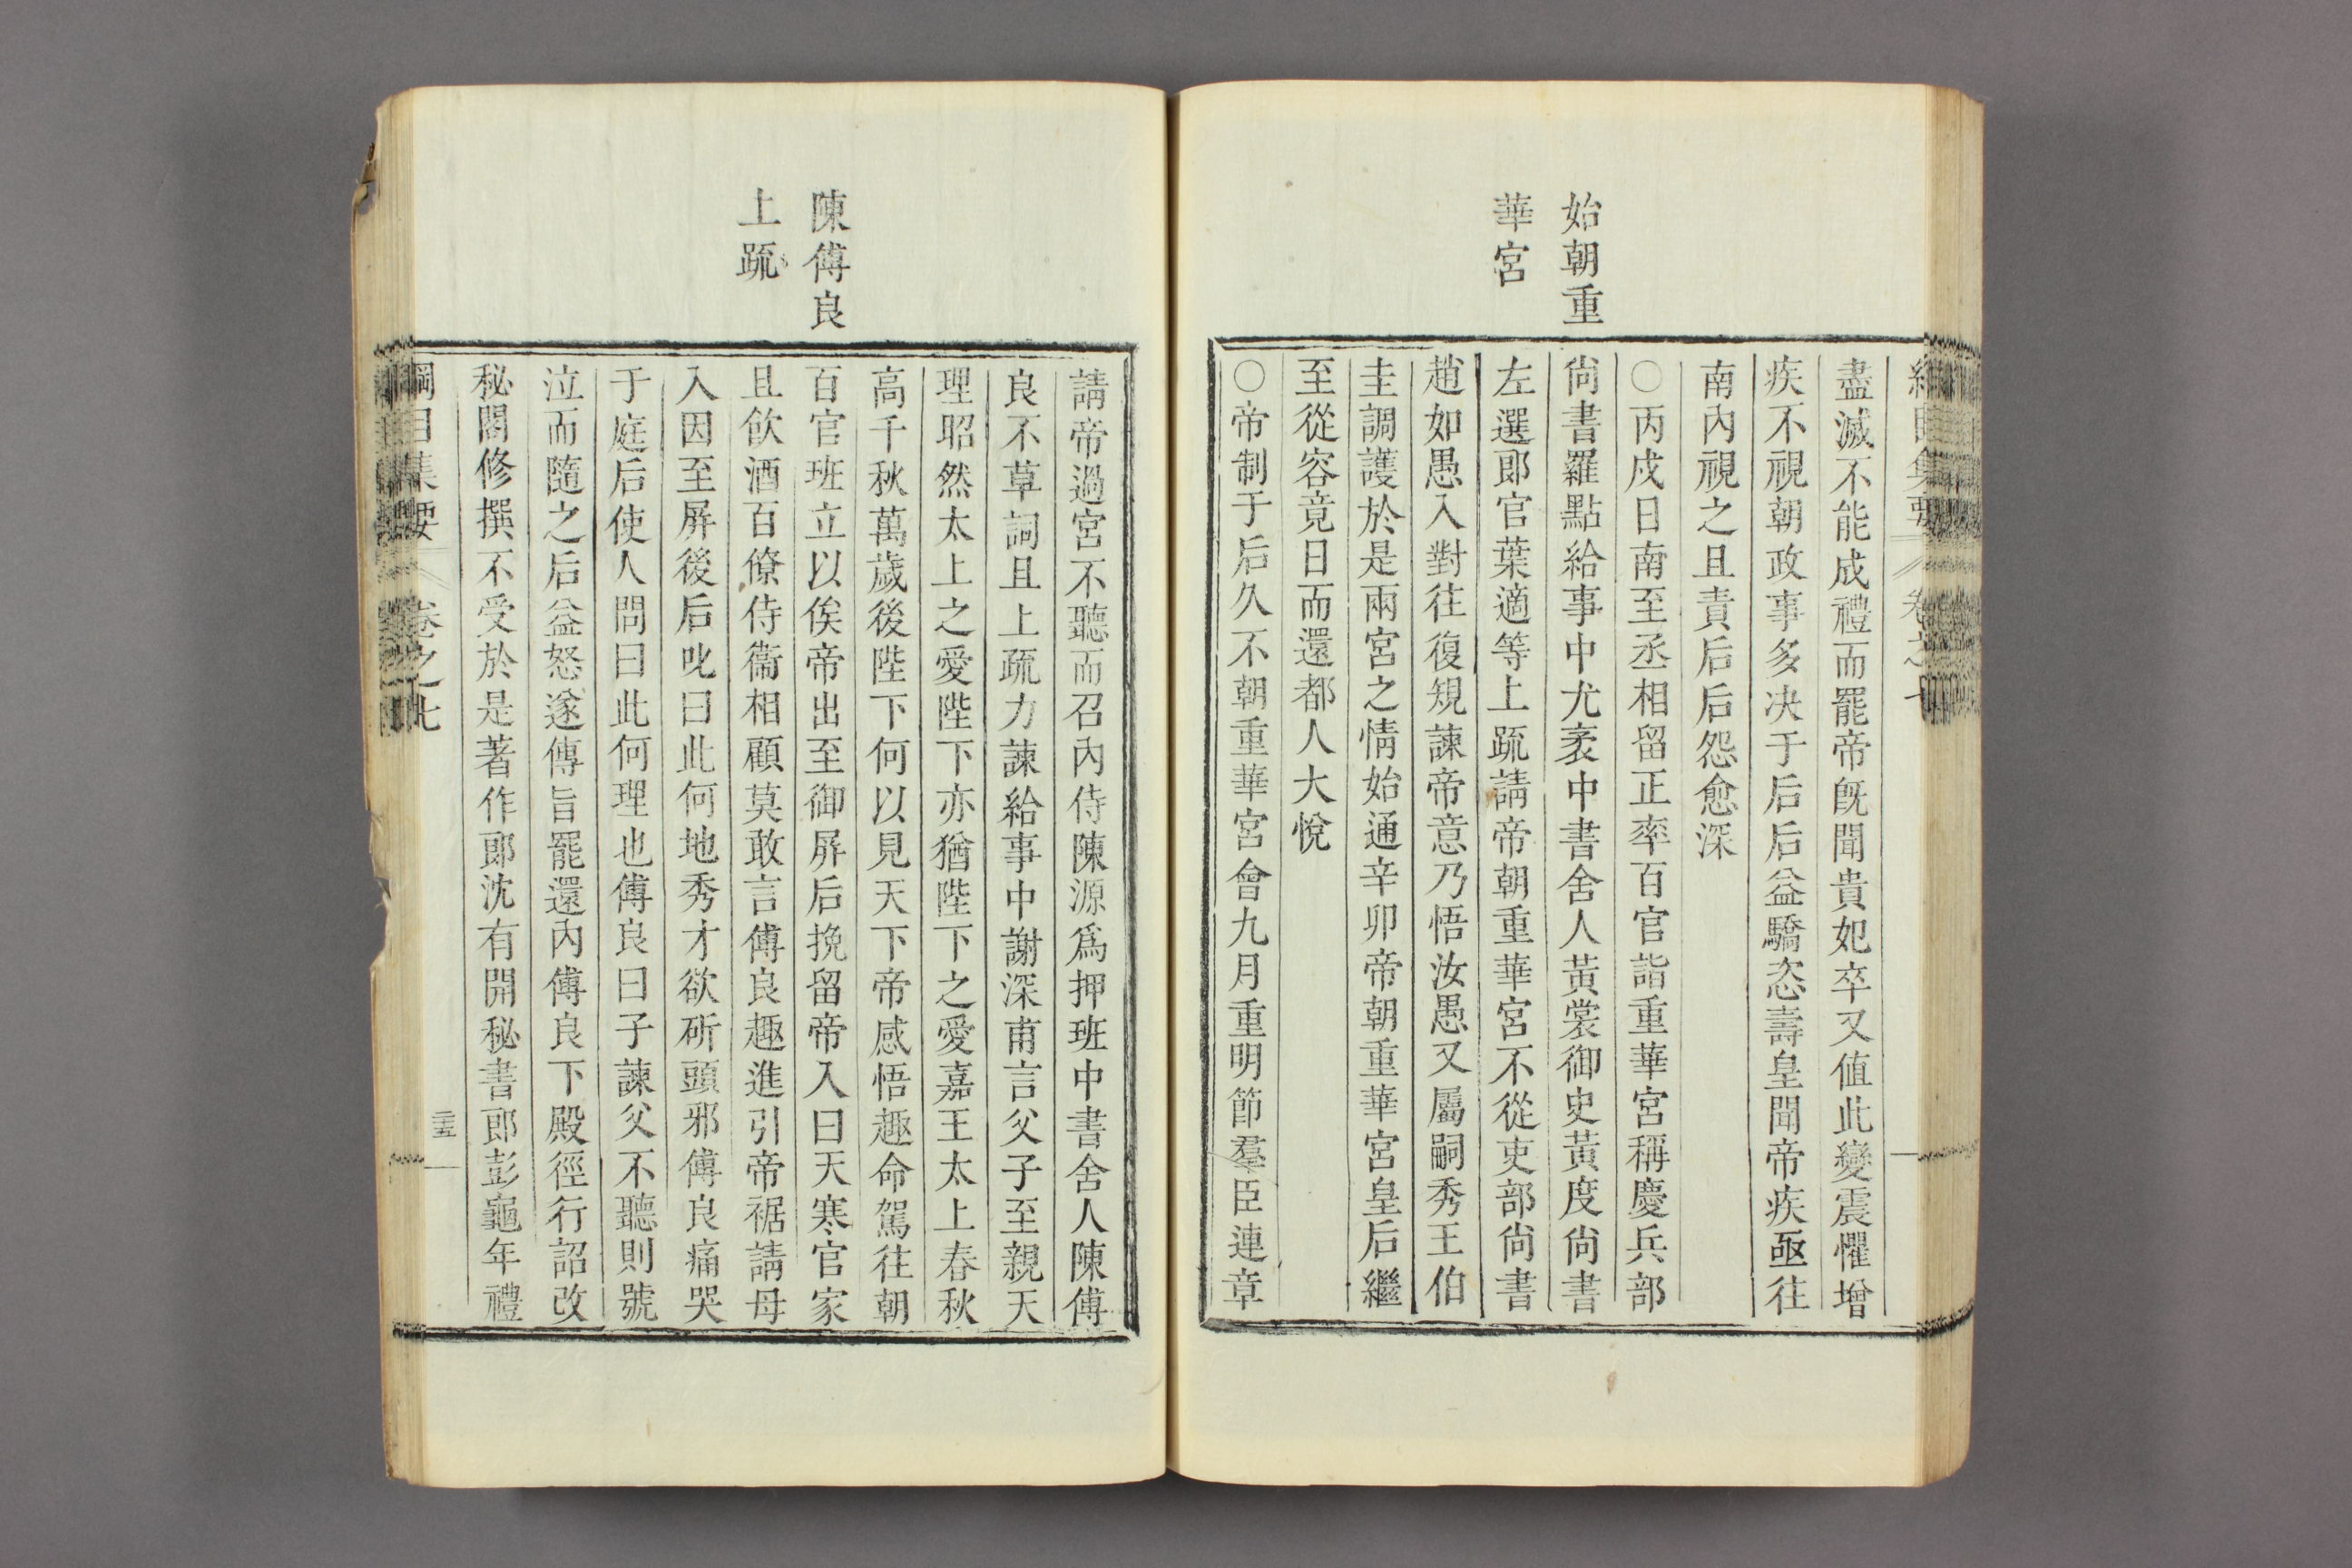 始朝重
華宮
盡滅不能成禮而罷帝旣聞貴妃卒又值此變震懼增
疾不視朝政事多决于后后益驕恣壽皇聞帝疾亟往
南內視之且責后后怨愈深
○丙戌日南至丞相留正率百官詣重華宮稱慶兵部
尙書羅點給事中尤袤中書舍人黃裳御史黃度尙書
左選郞官葉適等上疏請帝朝重華宮不從吏部尙書
趙如愚入對往復規諫帝意乃悟汝愚又屬嗣秀王伯
圭調護於是兩宮之情始通辛卯帝朝重華宮皇后繼
至從容竟日而還都人大悅
○帝制于后久不朝重華宮會九月重明節羣臣連章
陳傅良
上疏
請帝過宮不聽而召內侍陳源爲押班中書舍人陳傅
良不草詞且上疏力諫給事中謝深甫言父子至親天
理昭然太上之愛陛下亦猶陛下之愛嘉王太上春秋
高千秋萬歲後陛下何以見天下帝感悟趣命駕往朝
百官班立以俟帝出至御屏后挽留帝入曰天寒官家
且飮酒百僚侍衞相顧莫敢言傅良趣進引帝裾請母
入因至屏後后叱曰此何地秀才欲斫頭邪傅良痛哭
于庭后使人問曰此何理也傅良曰子諫父不聽則號
泣而隨之后益怒遂傳旨罷還內傅良下殿徑行詔改
秘閣修撰不受於是著作郞沈有開秘書郞彭龜年禮
綱目集要 卷之七